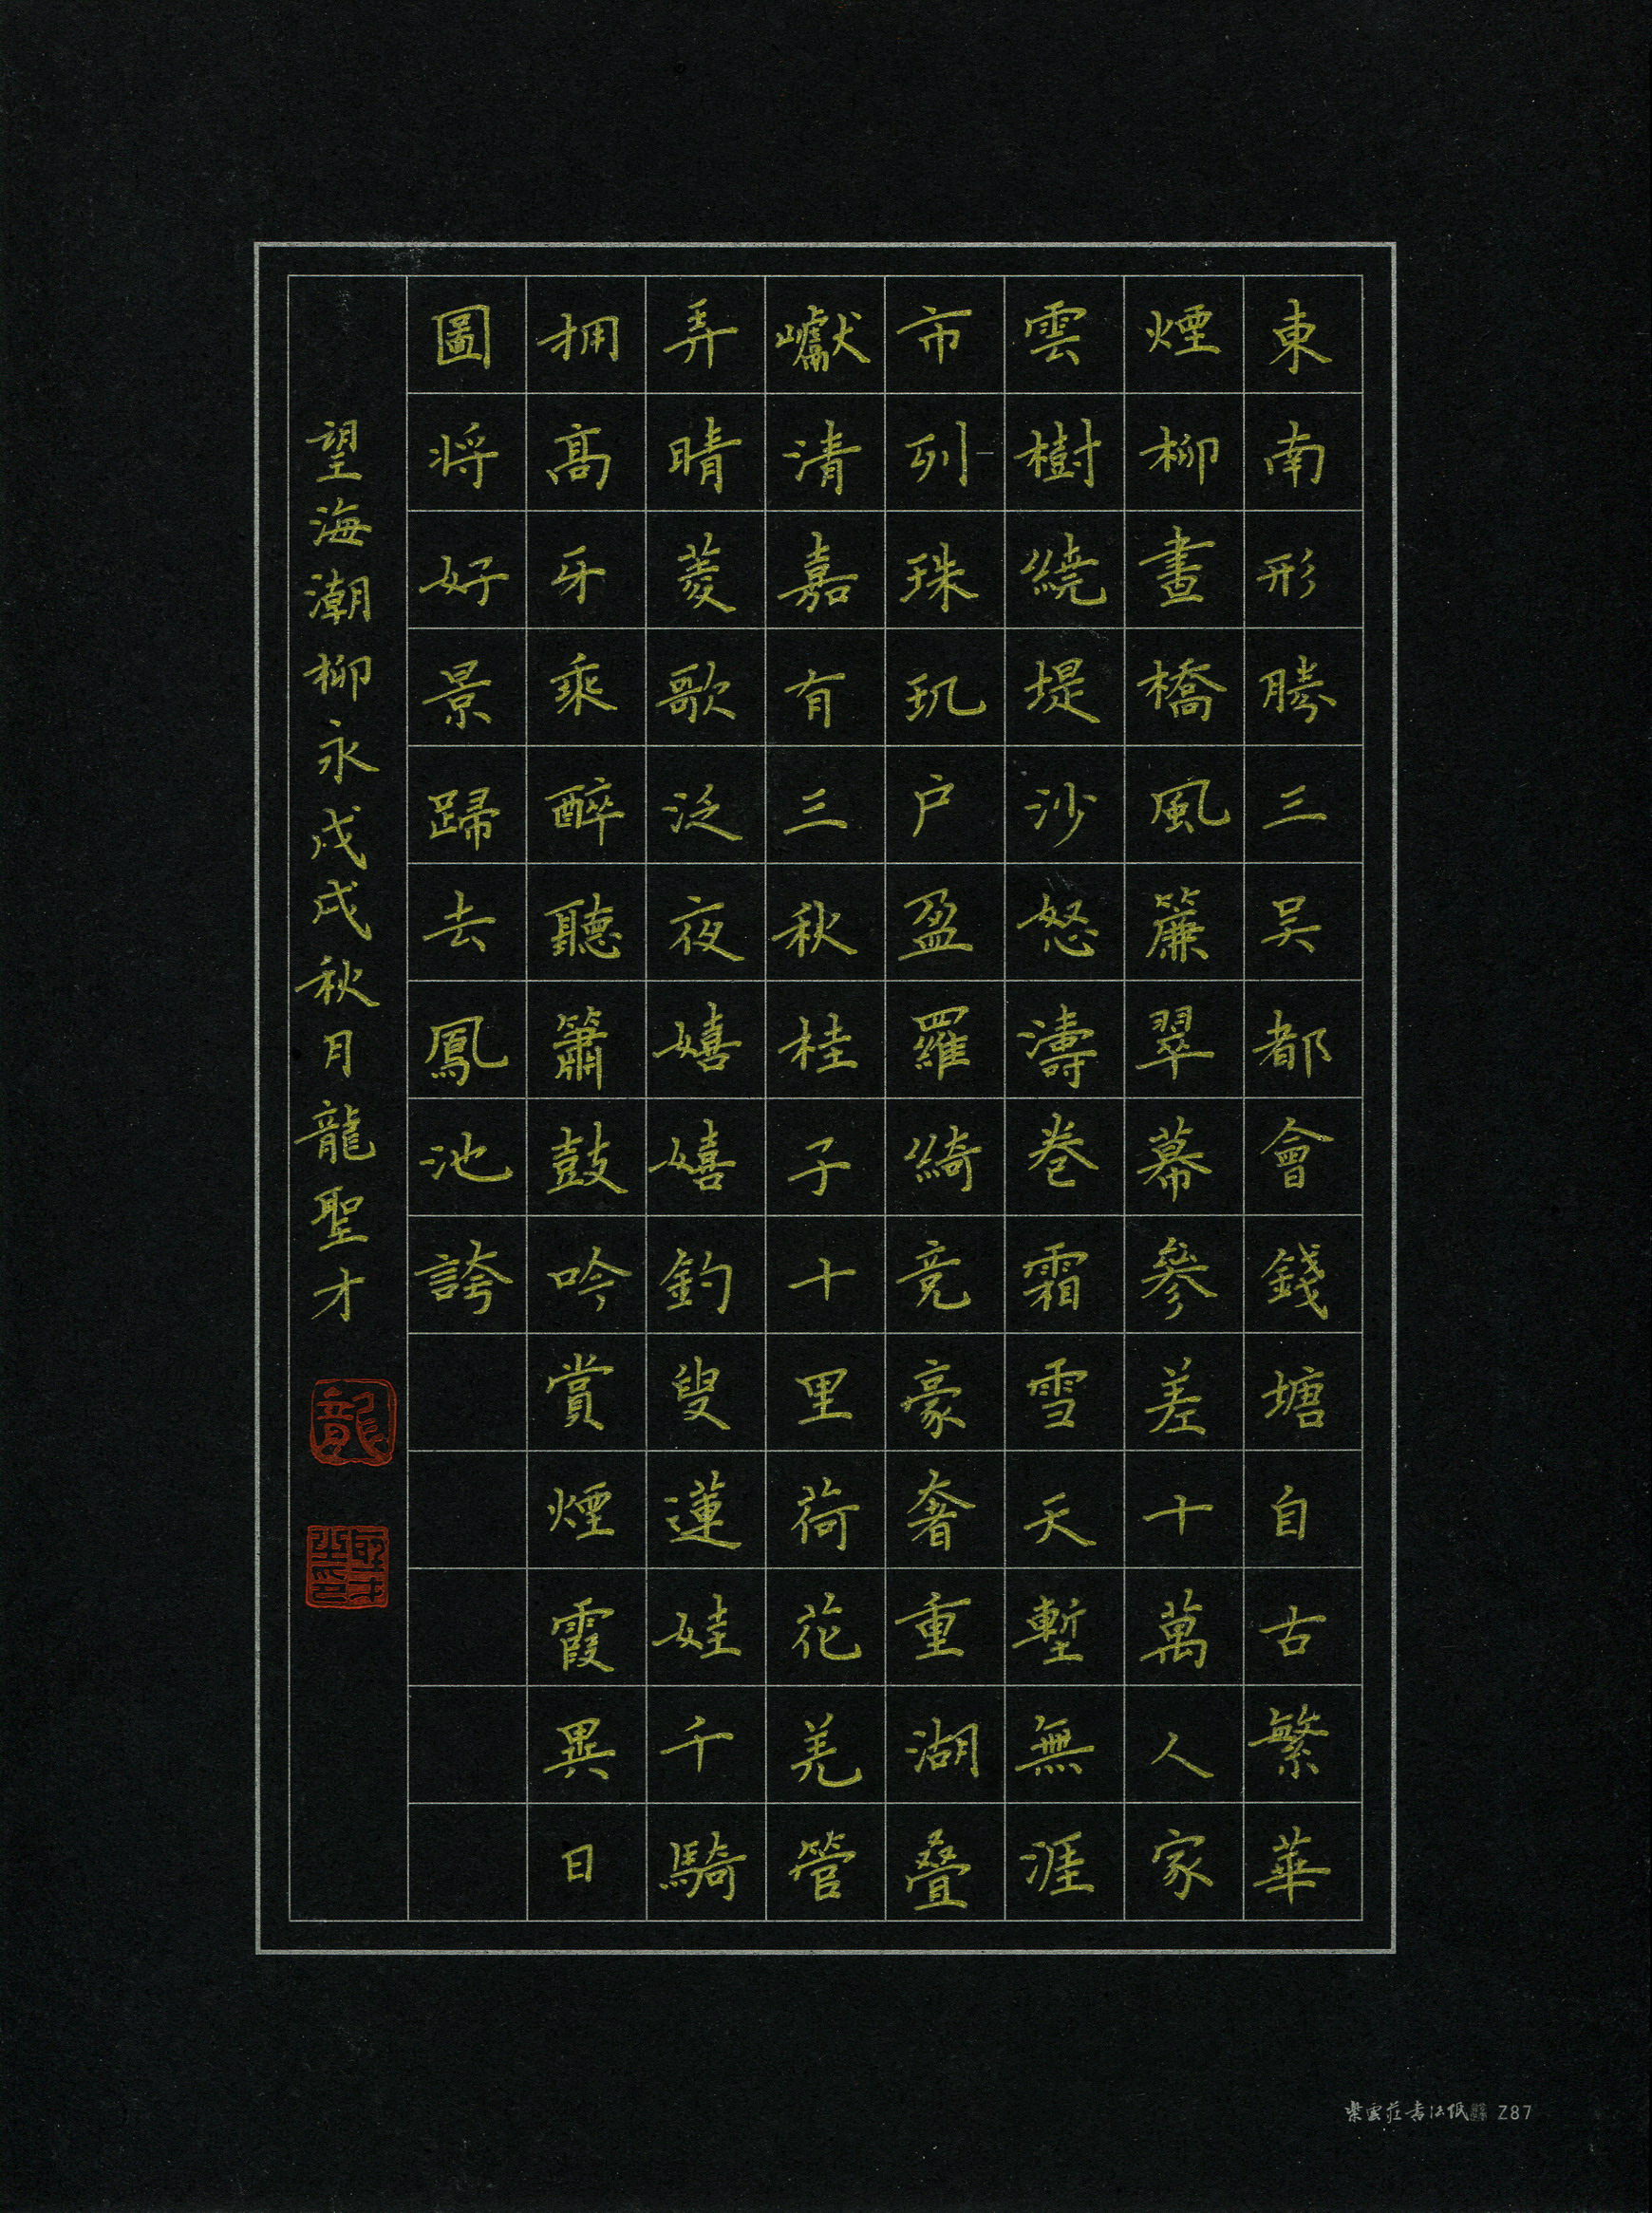 東南形勝三吳都會錢塘自古繁華
煙柳畫橋風簾翠幕參差十萬人家
雲樹繞堤沙怒濤卷霜雪天塹無涯
市列珠玑户盈羅綺竞豪奢重湖叠
巘清嘉有三秋桂子十里荷花羌管
弄晴菱歌泛夜嬉嬉釣叟蓮娃千騎
拥高牙乘醉聽簫鼓吟賞煙霞異日
圖将好景歸去鳳池誇
望海潮柳永戊戌秋月龍聖才
龍
聖才之印
紫雲莊書法纸 Z87